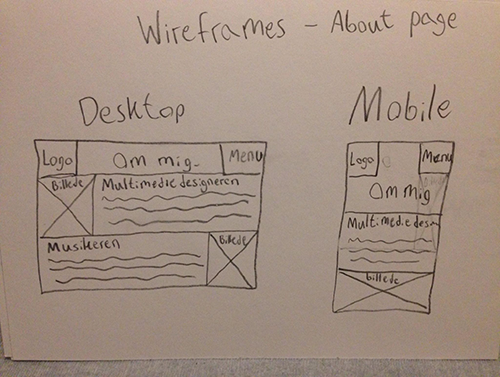 Wireframes - About page
Desktop
Logo
Om mig
Menu
Billede
Multimediedesigneren
Musikeren
Billede
Mobile
Logo
Menu
Om mig
Multimediedesi
billede